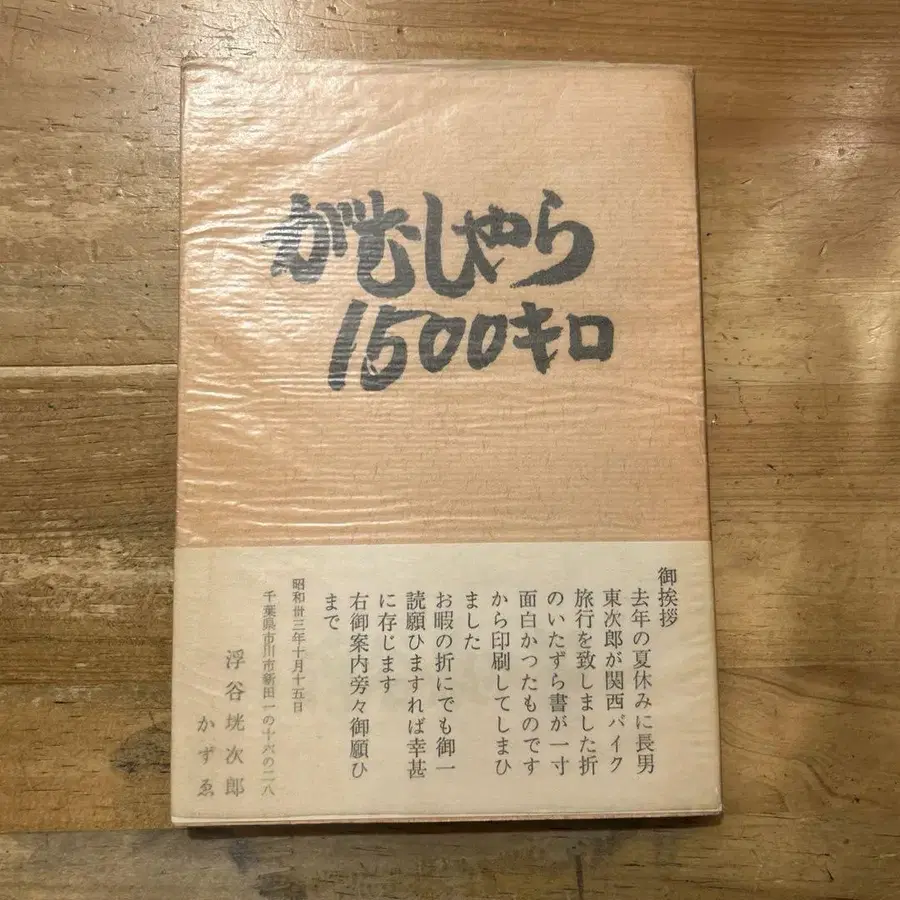 がむしゃら
1500キロ
御挨拶
去年の夏休みに長男
東次郎が関西バイク
旅行を致しました折
のいたずら書が一寸
面白かつたものです
から印刷してしまひ
ました
お暇の折にでも御一
読願ひますれば幸甚
に存じます
右御案内旁々御願ひ
まで
昭和卅三年十月十五日
千葉県市川市新田一の十六の二八
浮谷㧥次郎
かずゑ